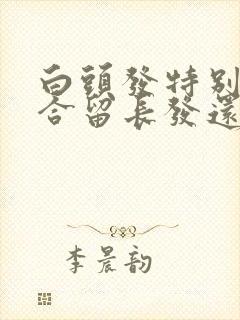 白頭發特別
合留長發還
李晨韵